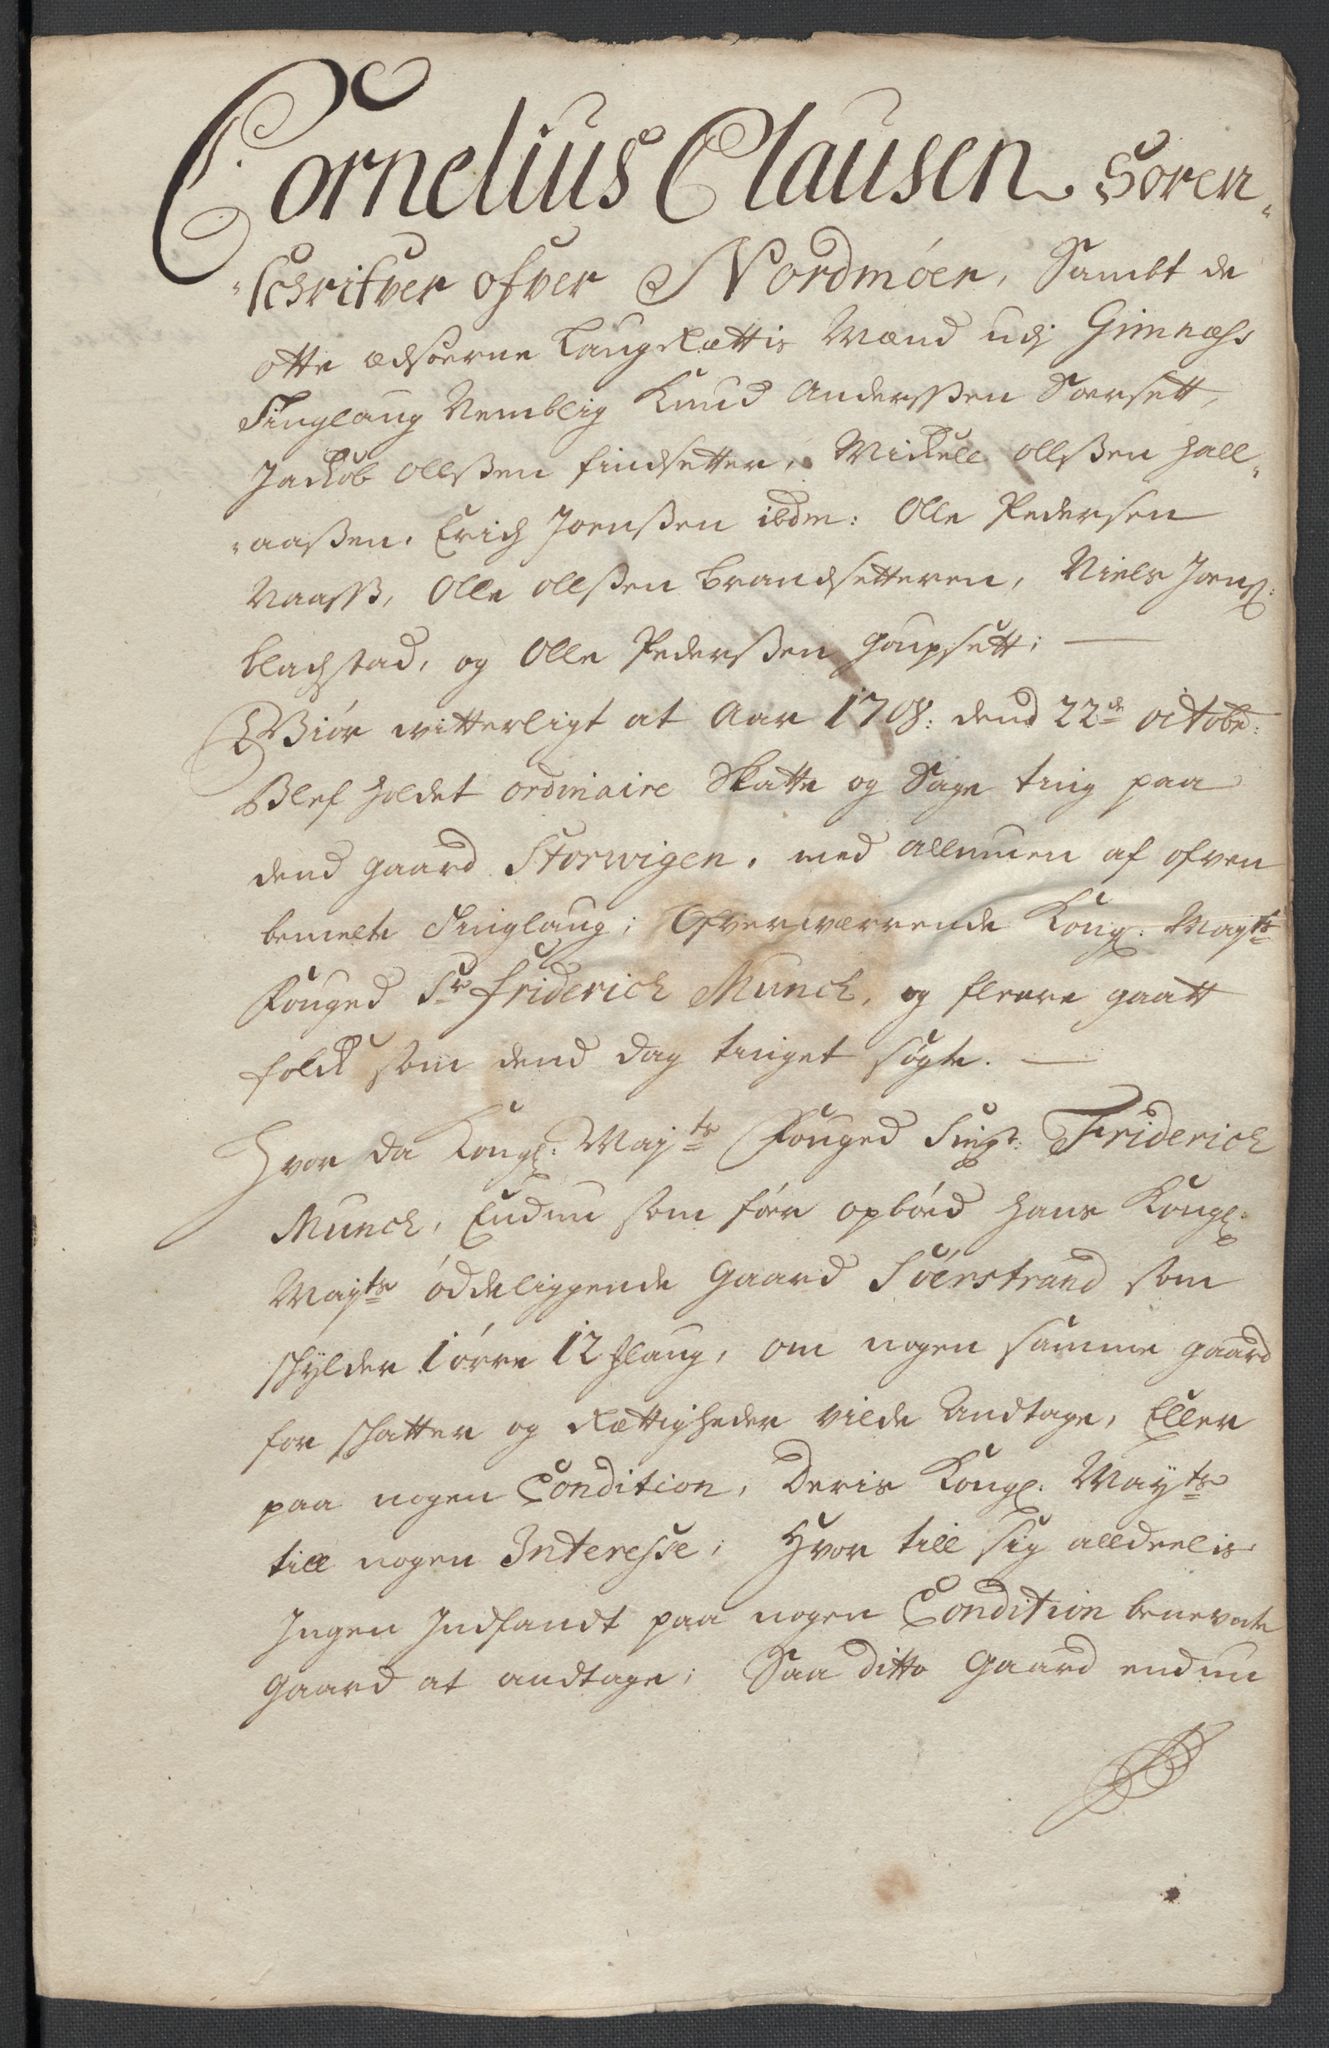 Cornelius Clausen Soren-
schrifver ofver Nordmøer, Sambt de
otte Edsoerne Laugrættis Mænd udj Gimnæss
Tinglaug Nemblig Knud Anderssen Særsett,
Jackob Ollssen Findsetter, Mickell Ollssen Hall-
aassen, Erich Joenssen ibdm: Olle Pedersen
Naass, Olle Ollssen Brandsetteren, Niels Joenss:
blachstad, og Olle Pederssen Goupsett;
Giør witterligt at Aar 1708: dend 22de octobr:
Blef holdet ordinaire Skatte og Sage ting paa
dend gaard Storwigen, med allmuen af ofven
bemelte Tinglaug; Ofverwærrende Kongl: Mayts
Fouged Sr Friderich Munch, og fleere gaatt
folck som dend dag tinget søgte.
Hvor da Kongl: Mayts Fouged Sinr: Friderich
Munch, Endnu som før opbød hans Kongl:
Mayts ødeliggende Gaard Sørstrand som
schylder 1 øre 12 Mlaug, om nogen samme gaard
for schatter og Rættigheder vilde Andtage, Eller
paa nogen Condition, Deris Kongl: Mayts
till nogen Interesse; Hvor till sig alldeelis
Ingen Indfandt paa nogen Condition benevnte
Gaard at andtage; Saa ditto Gaard endnu